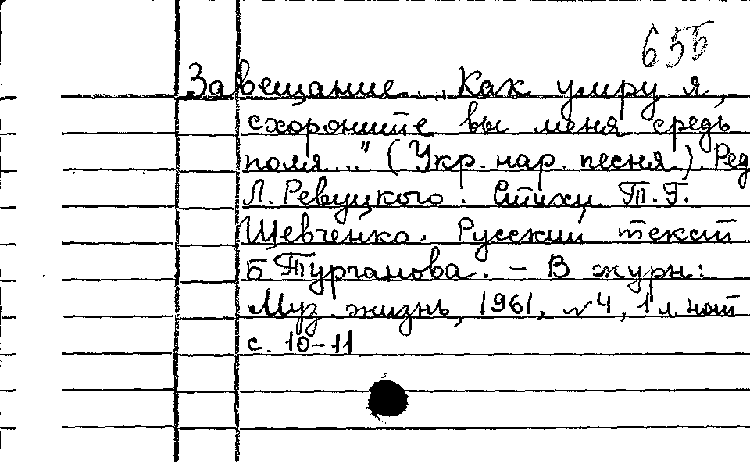 65Б
Завещание. „Как умру я,
схороните вы меня средь
поля..." (Укр. нар. песня). Ред
Л. Ревуцкого. Стихи Т.Г.
Шевченко. Русский текст
Б Турганова. - В журн:
Муз. жизнь, 1961, №4, 1 л. нот
с. 10-11